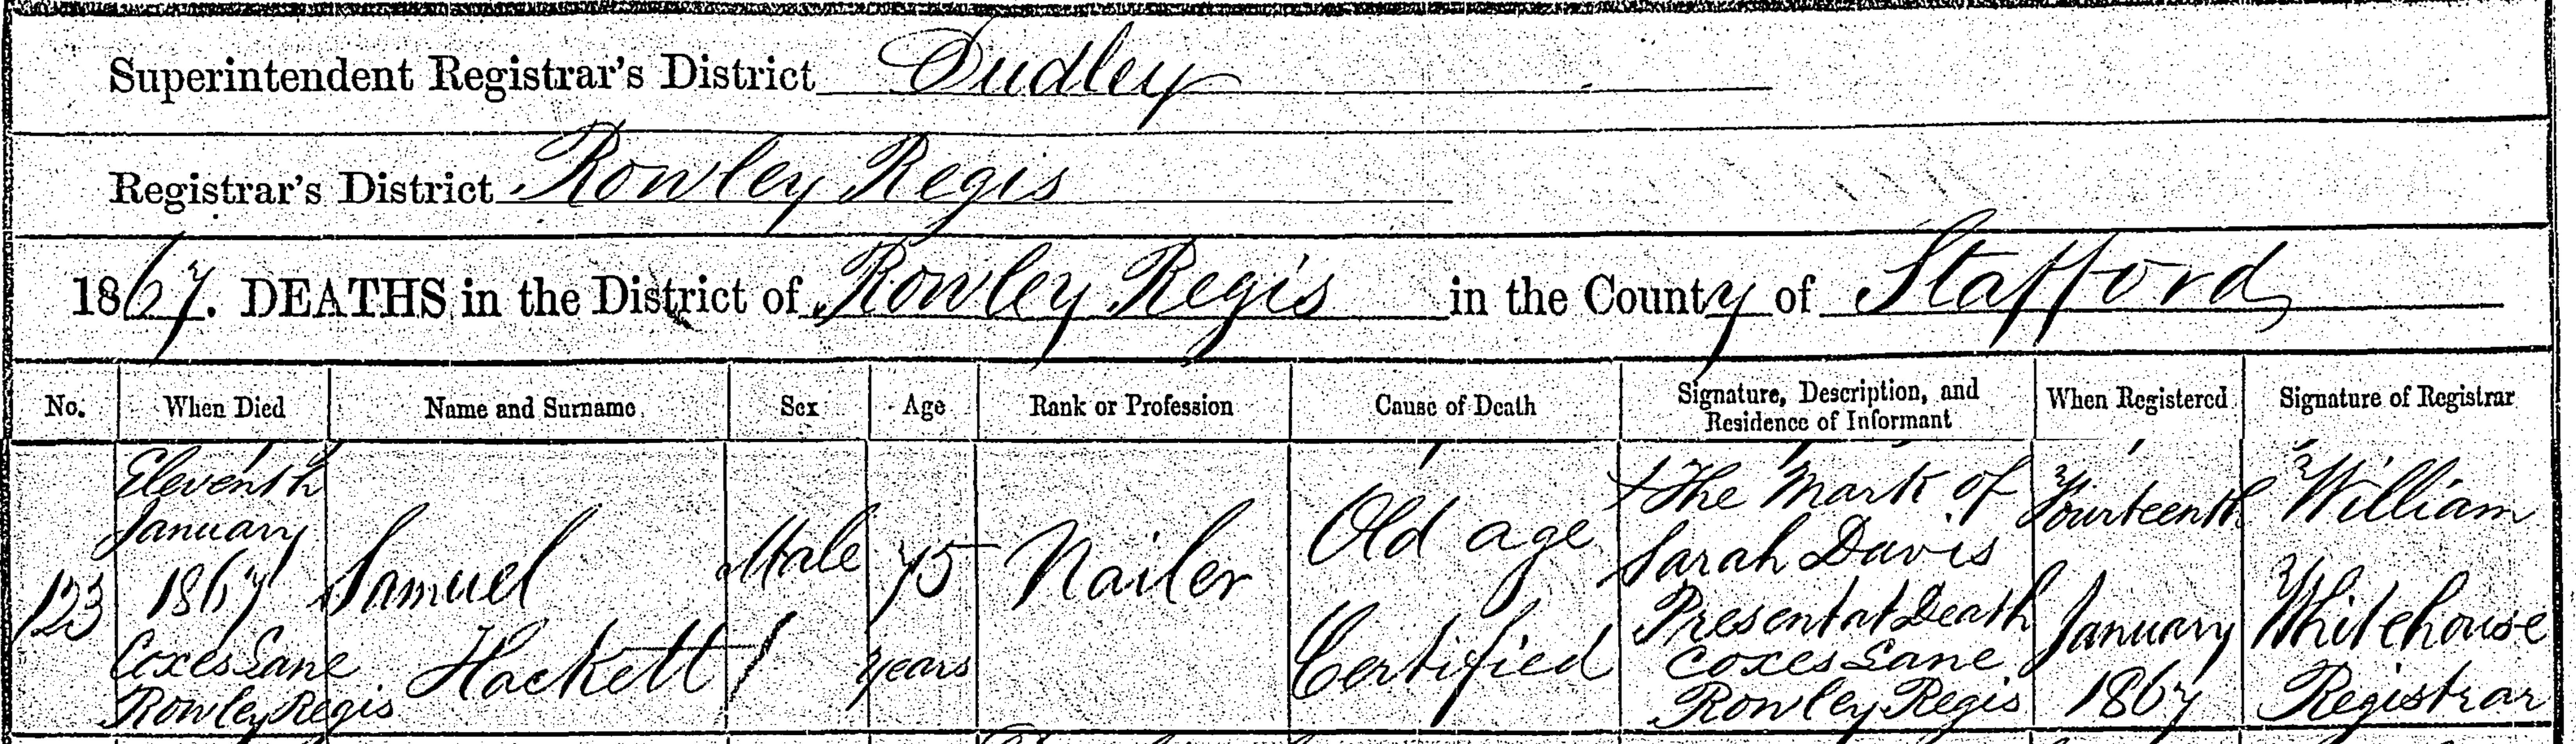 Superintendent Registrar's District Dudley
Registrar's District Rowley Regis
1867. DEATHS in the District of Rowley Regis in the County of Stafford
No. When Died Name and Surname Sex Age Rank or Profession Cause of Death Signature, Description, and Residence of Informant When Registered Signature of Registrar
123
Eleventh
January
1867
Coxes Lane
Rowley Regis
Samuel
Hackett
Male
75
years
Nailer
Old age
Certified
+ The Mark of
Sarah Davis
Present at Death
Coxes Lane
Rowley Regis
Fourteenth
January
1867
William
Whitehouse
Registrar